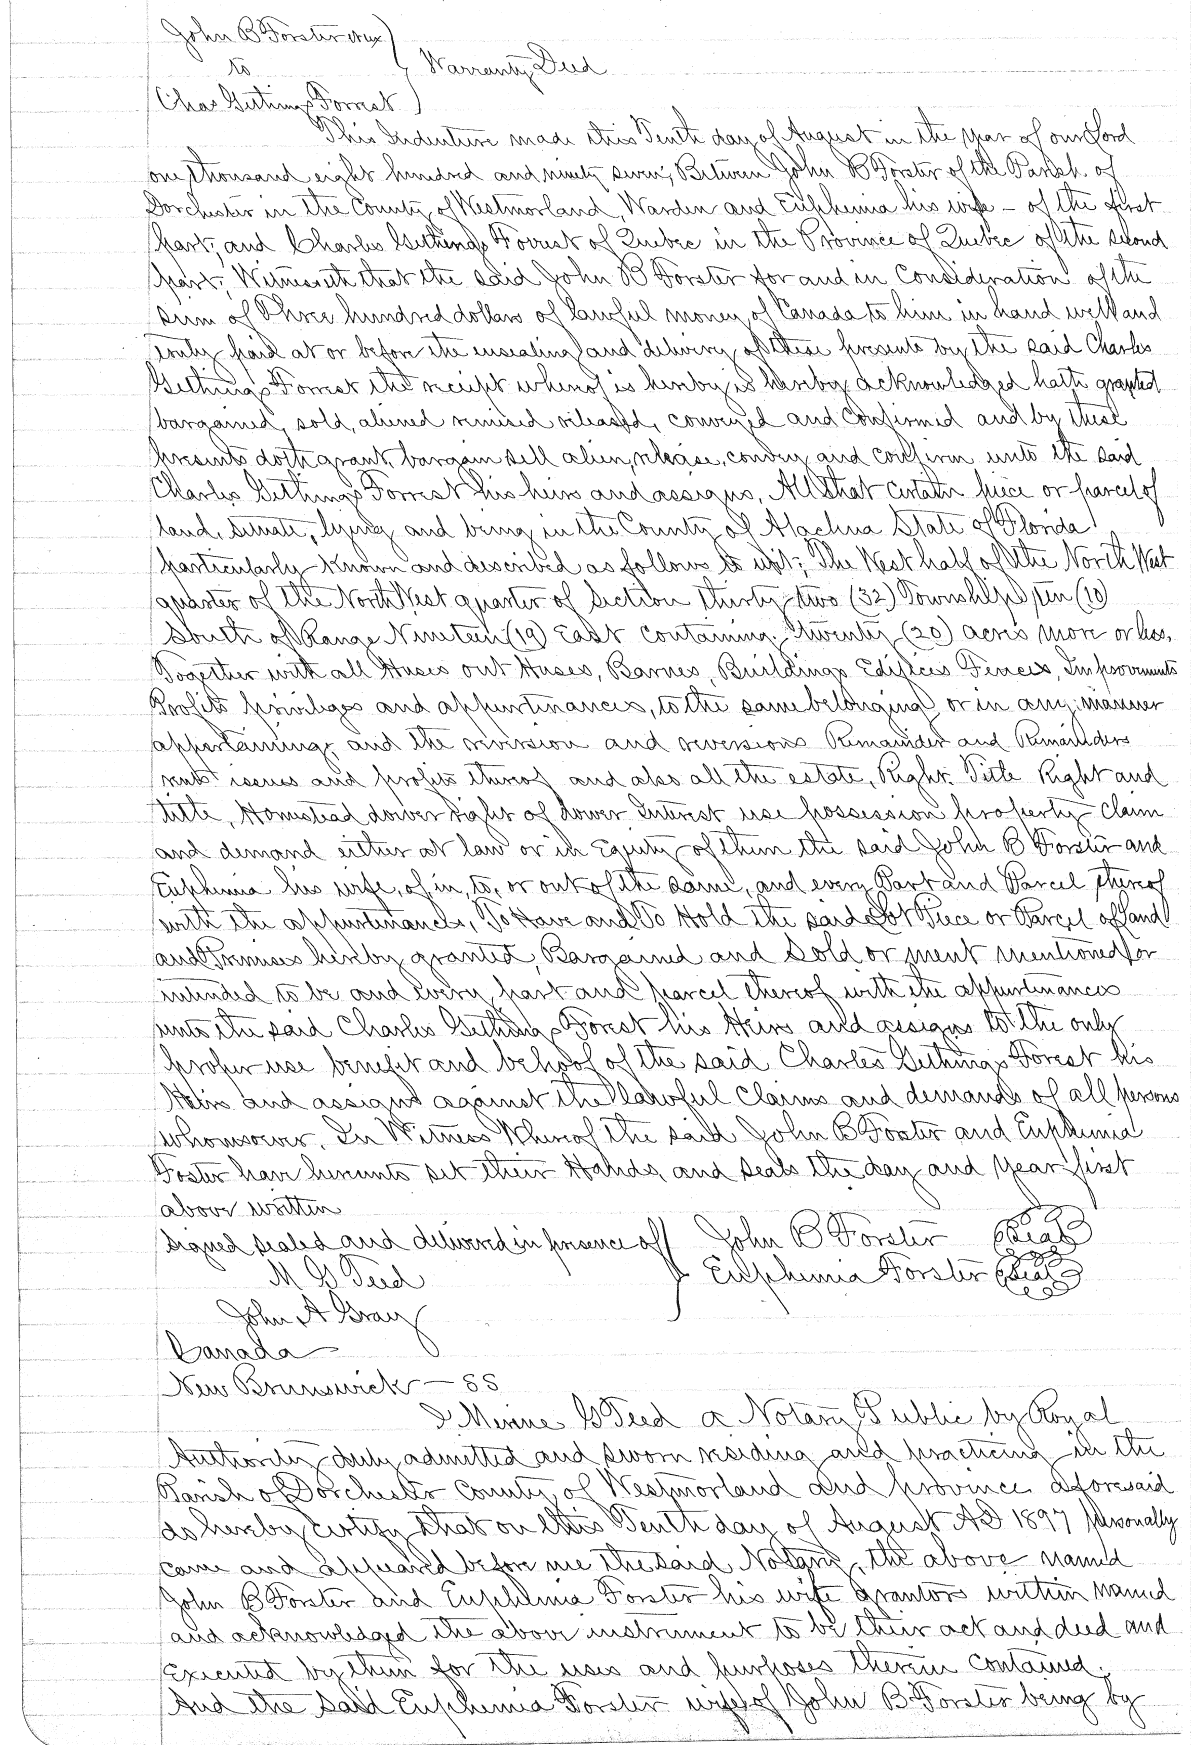 John B Forster & ux )
to ) Warranty Deed
Chas Gethings Forrest )
This Indenture made this Tenth day of August in the year of our Lord
one thousand eight hundred and ninety seven, Between John B Forster of the Parish of
Dorchester in the County of Westmorland, Warden and Euphemia his wife - of the first
part, and Charles Gethings Forrest of Quebec in the Province of Quebec of the second
part, Witnesseth that the said John B Forster for and in Consideration of the
sum of Three hundred dollars of lawful money of Canada to him in hand well and
truly paid at or before the ensealing and delivery of these presents by the said Charles
Gethings Forrest the receipt whereof is hereby is hereby acknowledged hath granted
bargained, sold, aliened remised released, conveyed and Confirmed and by these
presents doth grant, bargain sell alien, release, convey and confirm unto the said
Charles Gethings Forrest his heirs and assigns, All that certain piece or parcel of
land, situate, lying and being in the County of Alachua State of Florida
particularly known and described as follows to wit; The West half of the North West
quarter of the North West quarter of Section thirty two (32) Township ten (10)
South of Range Nineteen (19) East containing twenty (20) acres more or less,
Together with all Huses out Huses, Barnes, Buildings Edifices Fences, Improvements
Profits privileges and appurtinances, to the same belonging or in any manner
appertaining and the revirsion and reversions Remainder and Remainders
rents issues and profits thereof and also all the estate, Right Title Right and
title, Homestead dower right of dower Interest use possession property claim
and demand either at law or in Equity of them the said John B Forster and
Euphemia his wife, of, in, to, or out of the same, and every Part and Parcel thereof
with the appurtinances, To Have and To Hold the said Lot Piece or Parcel of Land
and Premises hereby granted, Bargained and Sold or ment mentioned or
intended to be and every part and parcel thereof with the appurtinances
unto the said Charles Gethings Forest his Heirs and assigns to the only
proper use benefit and behoof of the said Charles Gethings Forest his
Heirs and assigns against the lawful Claims and demands of all persons
whomsoever, In Witness Whereof the said John B Foster and Euphemia
Foster have hereunto set their Hands and seals the day and year first
above written
Signed sealed and delivered in presence of ) John B Forster (Seal)
M G Teed ) Euphemia Forster (Seal)
John A Gray
Canada
New Brunswick - SS
I G Teed a Notary Public by Royal
Authority duly admitted and sworn residing and practicing in the
Parish of Dorchester County of Westmorland and province aforesaid
do hereby certify that on this Tenth day of August AD 1897 personally
came and appeared before me the said Notary, the above named
John B Forster and Euphemia Forster his wife grantors within named
and acknowledged the above instrument to be their act and deed and
Executed by them for the uses and purposes therein contained.
And the said Euphemia Forster wife of John B Forster being by